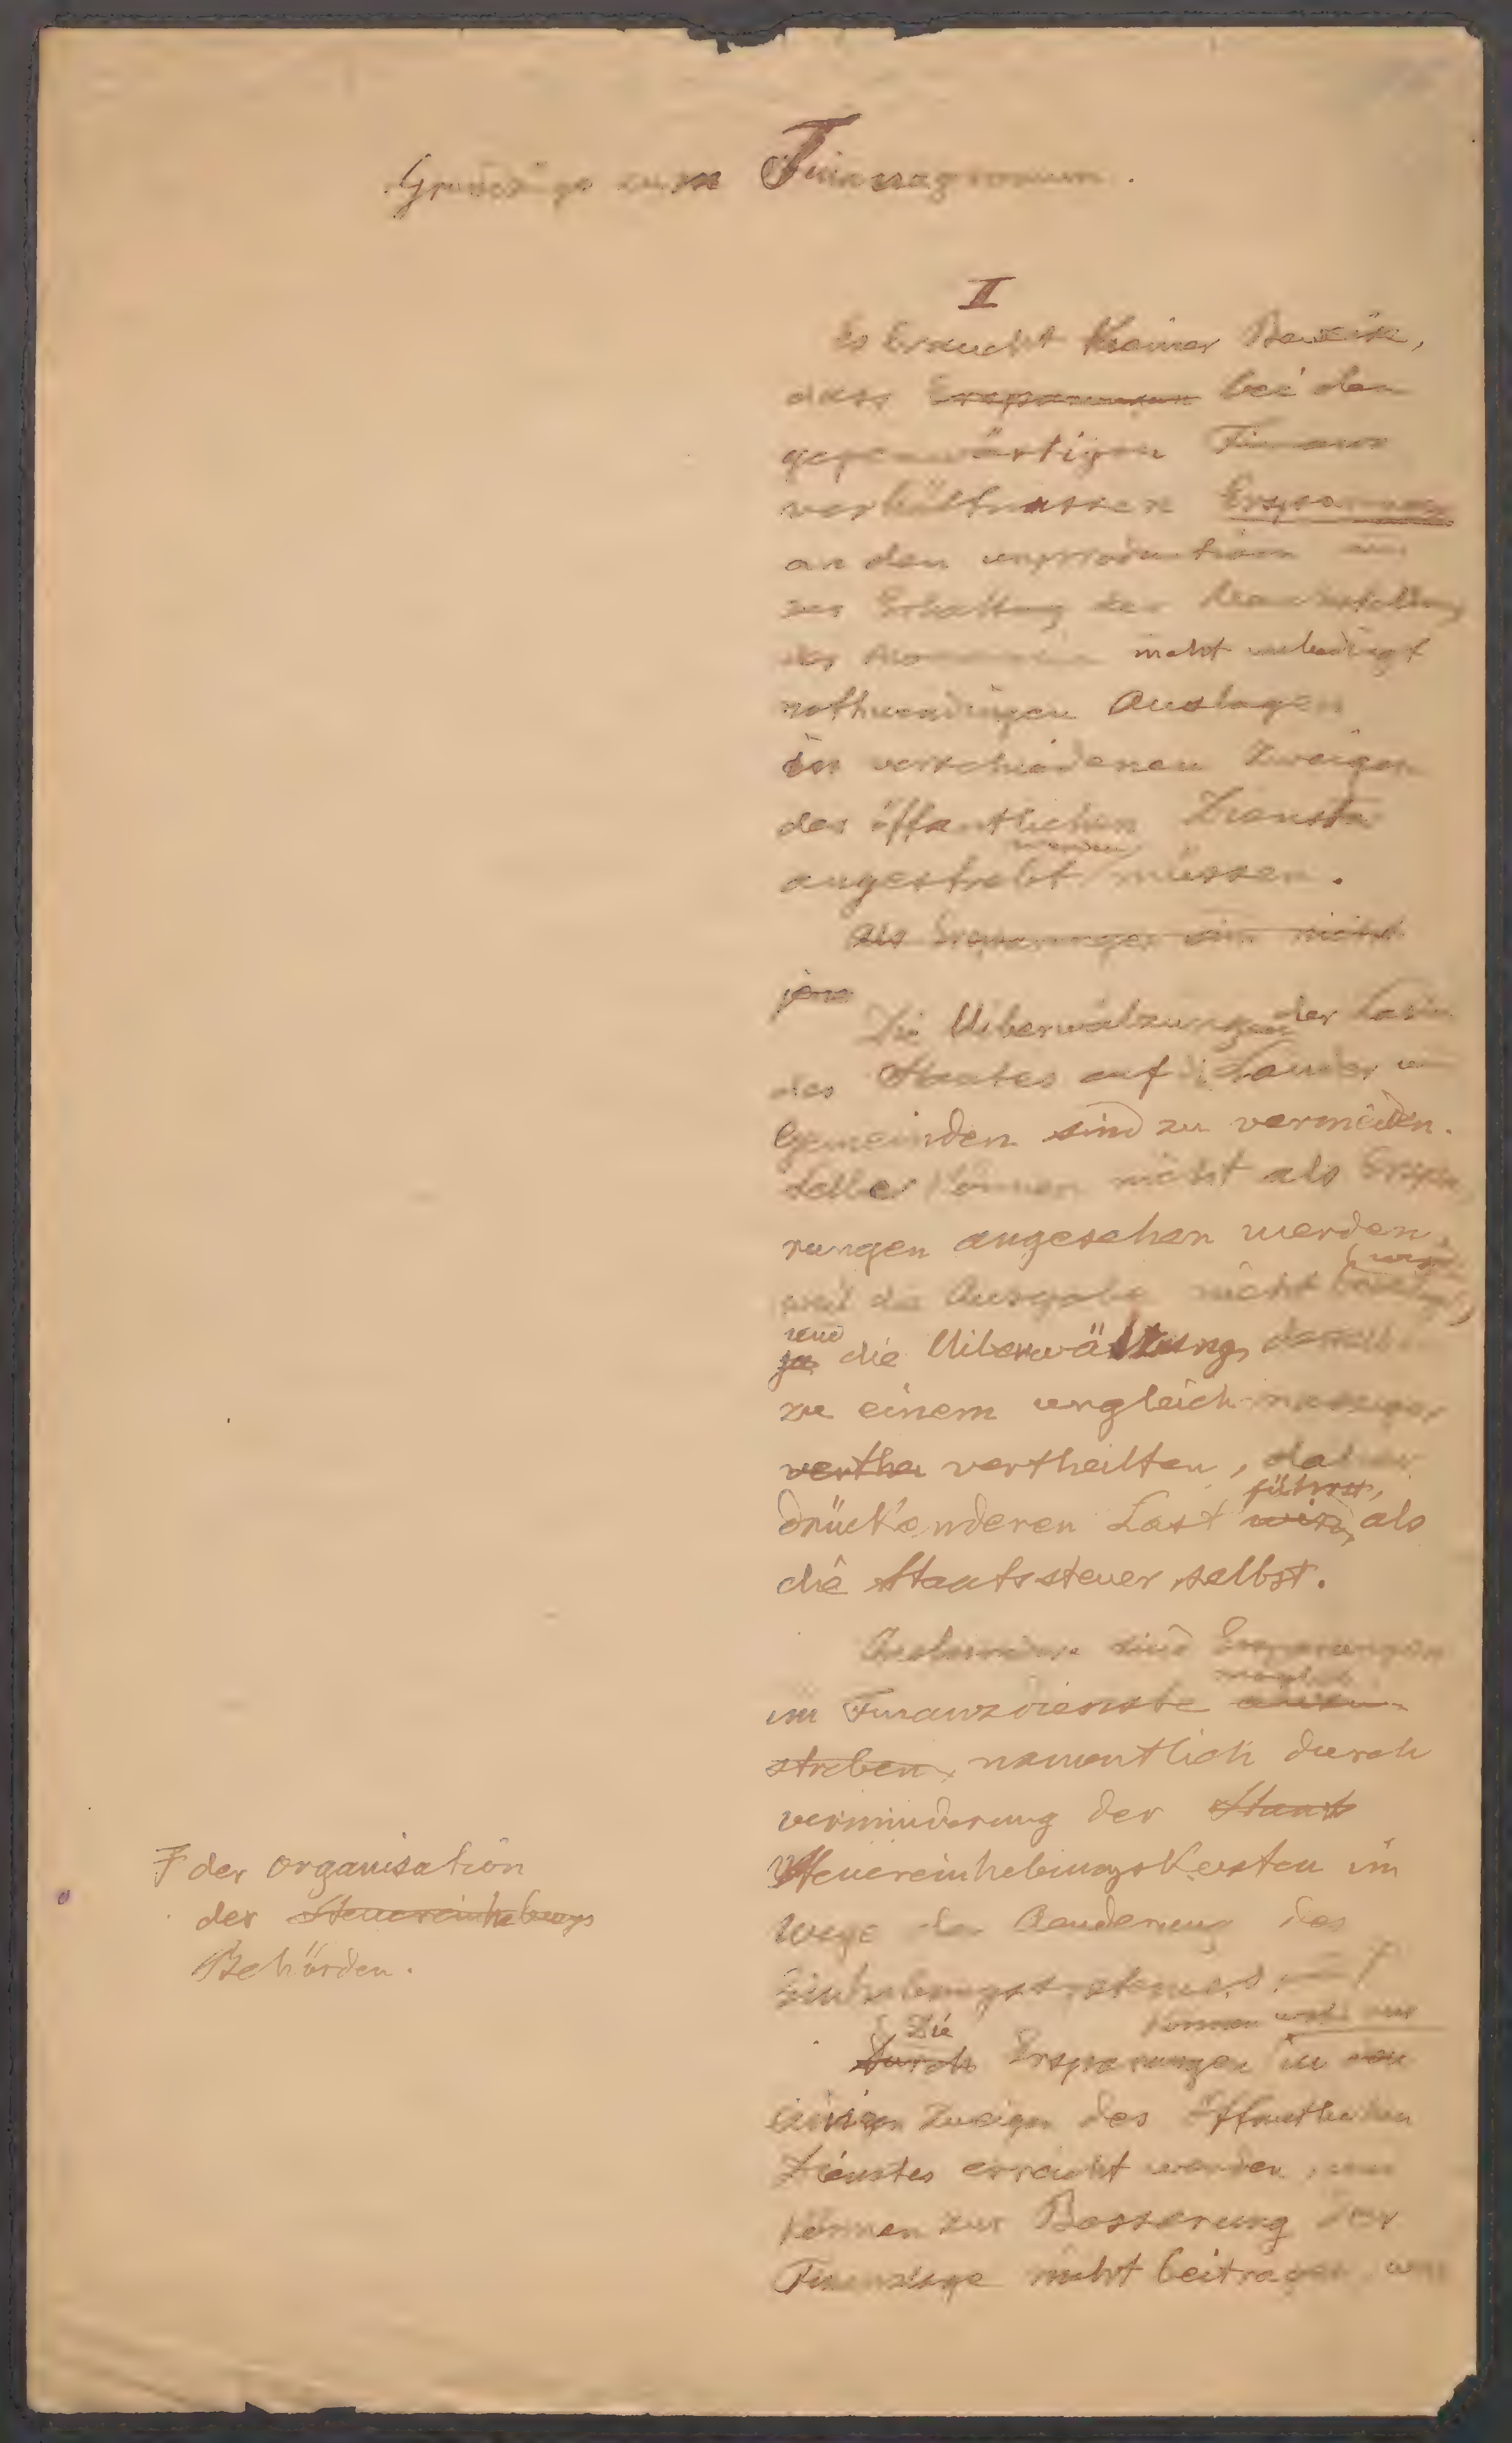 Grundzüge zum Finanzprogramm.
I
Es braucht keiner Beweise,
dass Ersparungen bei den
gegenwärtigen Finanz
verhältnissen Ersparungen
an den unproductiven und
zur Erhaltung der Machtstellung
der nicht unbedingt
nothwendigen Auslagen
in verschiedenen Zweigen
des öffentlichen Dienstes
werden
angestrebt müssen.
Als Ersparungen sind nicht
jene
Die Uiberwälzungen der Lasten
des Staates auf die Länder und
Gemeinden sind zu vermeiden.
Selbe können nicht als Erspa
rungen angesehen werden,
wird
weil die Ausgabe nicht beseitigt,
und
ja die Uiberwälzung derselben
zu einem ungleichmässiger
verthei vertheilten, daher
führt,
drückenderen Last wird, als
die Staatssteuer selbst.
sind Ersparungen
möglich
im Finanzdienste anzu-
streben, namentlich durch
verminderung der Staats
Steuereinhebungskosten im
Wege der Aenderung des
Einhebungssystemes, und Ŧ
Ŧ der organisation
der Steuereinhebungs
Behörden.
Die können wohl nur
Durch Ersparungen in den
einigen Zweigen des öffentlichen
Dienstes erreicht werden, und
können zur Besserung der
Finanzlage nicht beitragen, wenn